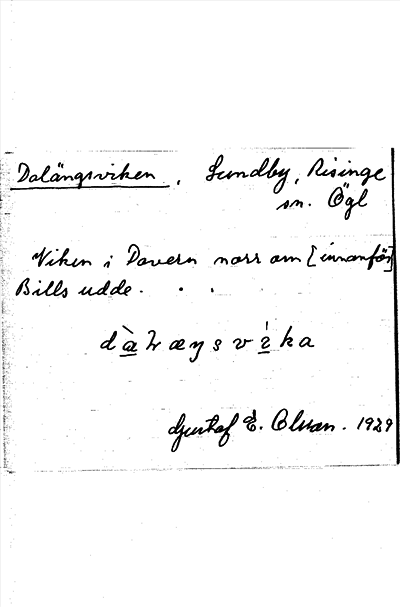 Dalängsviken, Sundby, Risinge
sn. Ögl
Viken i Dovern norr om [innanför]
Bills udde.
Gustaf E. Olsson. 1929